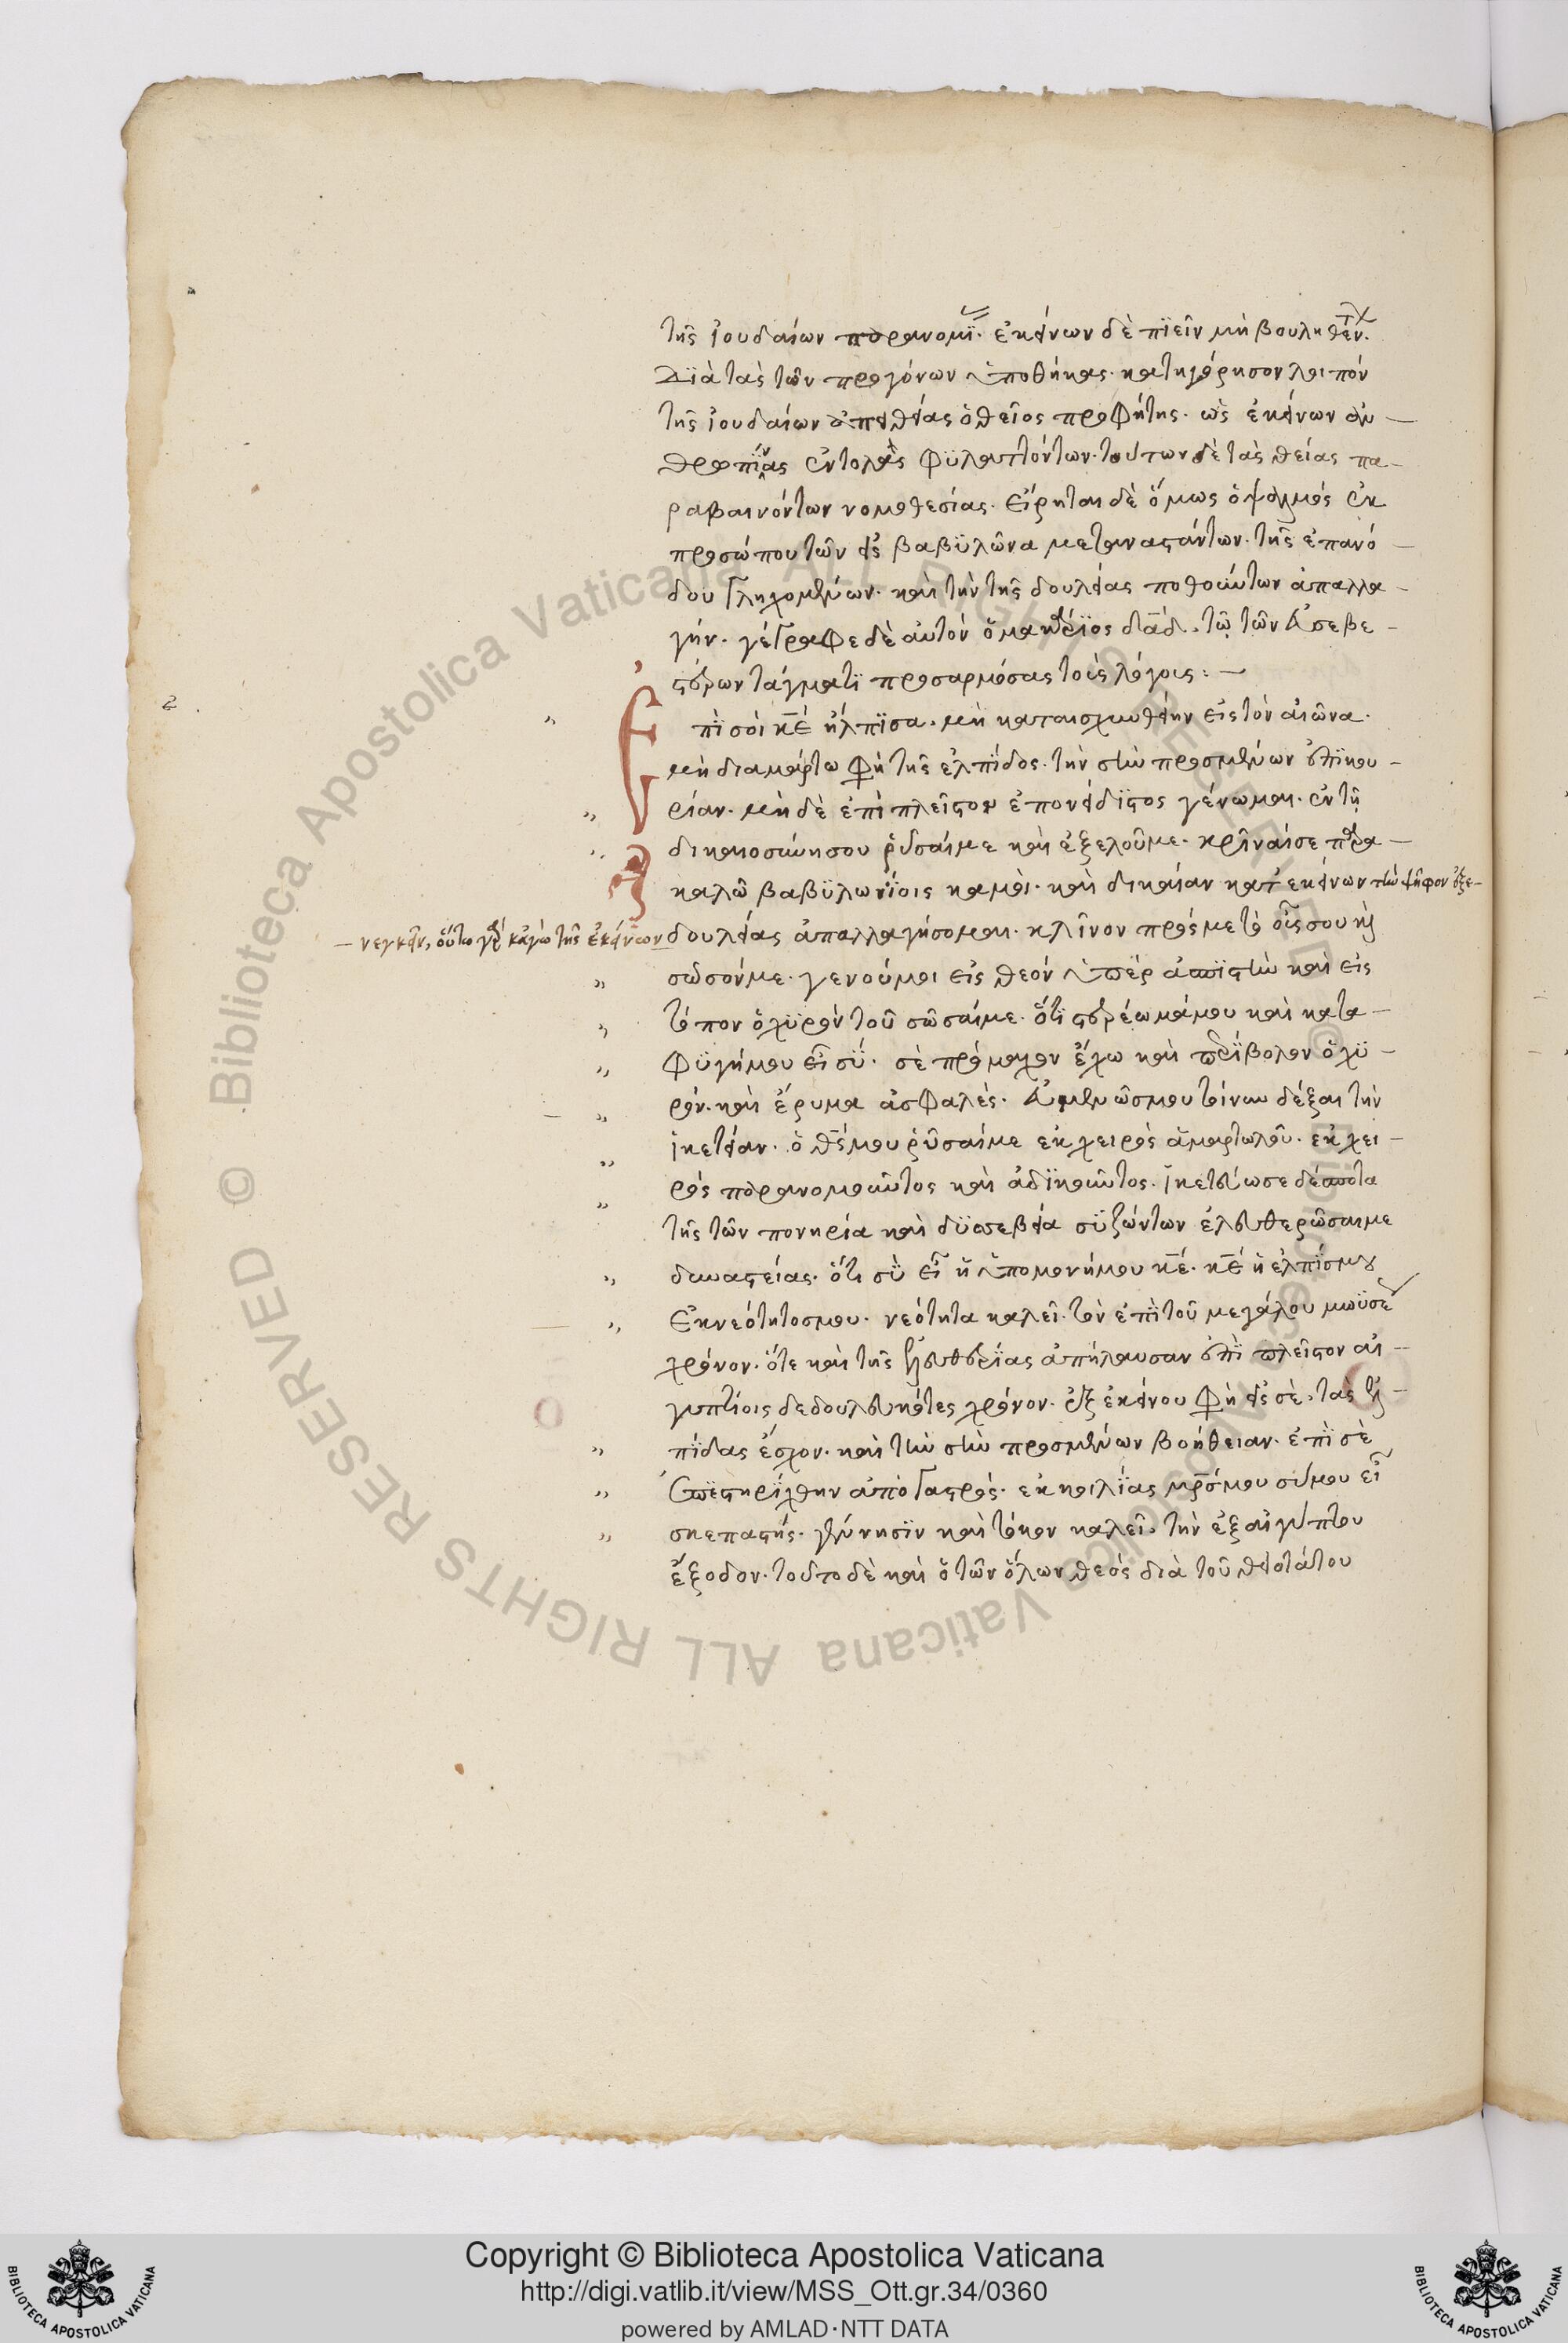 τῆς ἰουδαίων παρανομΐ. ἐκείνων δὲ πϊεῖν μὴ βουληθέν τ
Διὰ τὰς τῶν προγόνων ὑποθήκας. κατηγόρησον λοιπόν
τῆς ἰουδαίων ἀπειθείας ὁ θεῖος προφήτης. ὡς ἐκείνων ἀν
θρωπίνας ἐντολὰς φϋλαττόντων. τούτων δὲ τὰς θείας πα
ραβαινόντων νομοθεσίας. εἴρηται δὲ ὅμως ὁ ψαλμός ἐκ
προσώπου τῶν εἰς βαβϋλῶνα μεταναστάντων. τῆς ἐπανό
δου γλιχομένων. καὶ τὴν τῆς δουλείας ποθούντων ἀπαλλα
γήν. γέγραφε δὲ αὐτόν ὁ μακάριος δᾱδ. τῷ τῶν εὐσεβε
στέρων τάγματι προσαρμόσας τοὺς λόγους :
Ἐπὶ σοὶ κ̅ε̅ ἤλπϊσα. μὴ καταισχυνθείην εἰς τὸν αἰῶνα.
μὴ διαμάρτω φη τῆς ἐλπίδος. τὴν σὴν προσμένων ἐπϊκου
ρίαν. μὴ δὲ ἐπὶ πλεῖστον ἐπονείδιστος γένωμαι. ἐν τῇ
δικαιοσύνη σου ῥῦσαί με καὶ ἐξελοῦ με. κρῖναί σε παρα
καλῶ βαβϋλωνίοις καμοὶ. καὶ δικαίαν κατ ἐκείνων τὴν ψῆφον ἐξε
νεγκεῖν, οὕτω γὰρ κἀγὼ τῆς ἐκείνων δουλείας ἀπαλλαγήσομαι. κλῖνον πρός με τὸ οὖς σου καὶ
σῶσόν με. γενοῦ μοι εἰς θεόν ὑπερασπϊστὴν καὶ εἰς
τόπον ὀχϋρόν τοῦ σῶσαί με. ὅτι στερέωμά μου καὶ κατα
φϋγή μου εἶ σϋ. σὲ πρόμαχον ἔχω καὶ περίβολον ὀχϋ
ρόν. καὶ ἔρυμα ἀσφαλές. εὐμενῶς μου τοίνυν δέξαι τὴν
ἱκετείαν. ὁ θ̅ς̅ μου ῥῦσαί με ἐκ χειρός ἁμαρτωλοῦ. ἐκ χει
ρός παρανομοῦντος καὶ ἀδϊκοῦντος. ἱκετεύω σε δέσποτα
τῆς τῶν πονηρία καὶ δϋσσεβεία συζώντων ἐλευθερῶσαι με
δυναστείας. ὅτι σϋ εἶ ἡ ὑπομονή μου κ̅ε̅. κ̅ε̅ ἡ ἐλπίς μου
Ἐκ νεότητος μου. νεότητα καλεῖ. τὸν ἐπὶ τοῦ μεγάλου μωϋσέ
χρόνον. ὅτε καὶ τῆς ἐλευθερίας ἀπήλαυσαν ἐπὶ πλεῖστον αἰ
γυπτίοις δεδουλευκότες χρόνον. ἐξ ἐκείνου φη εἰς σὲ. τὰς ἐλ
πίδας ἔσχον. καὶ τὴν σὴν προσμένων βοήθειαν. ἐπὶ σὲ
ἐπεστηρίχθην ἀπὸ γαστρός. ἐκ κοιλίας μ̅ρ̅ς̅ μου σύ μου εἶ
σκεπαστής. γέννησϊν καὶ τόκον καλεῖ. τὴν ἐξ αἰγύπτου
ἔξοδον. τοῦτο δὲ καὶ ὁ τῶν ὅλων θεός διὰ τοῦ θειοτάτου
Copyright © Biblioteca Apostolica Vaticana
http://digi.vatlib.it/view/MSS_Ott.gr.34/0360
powered by AMLAD·NTT DATA